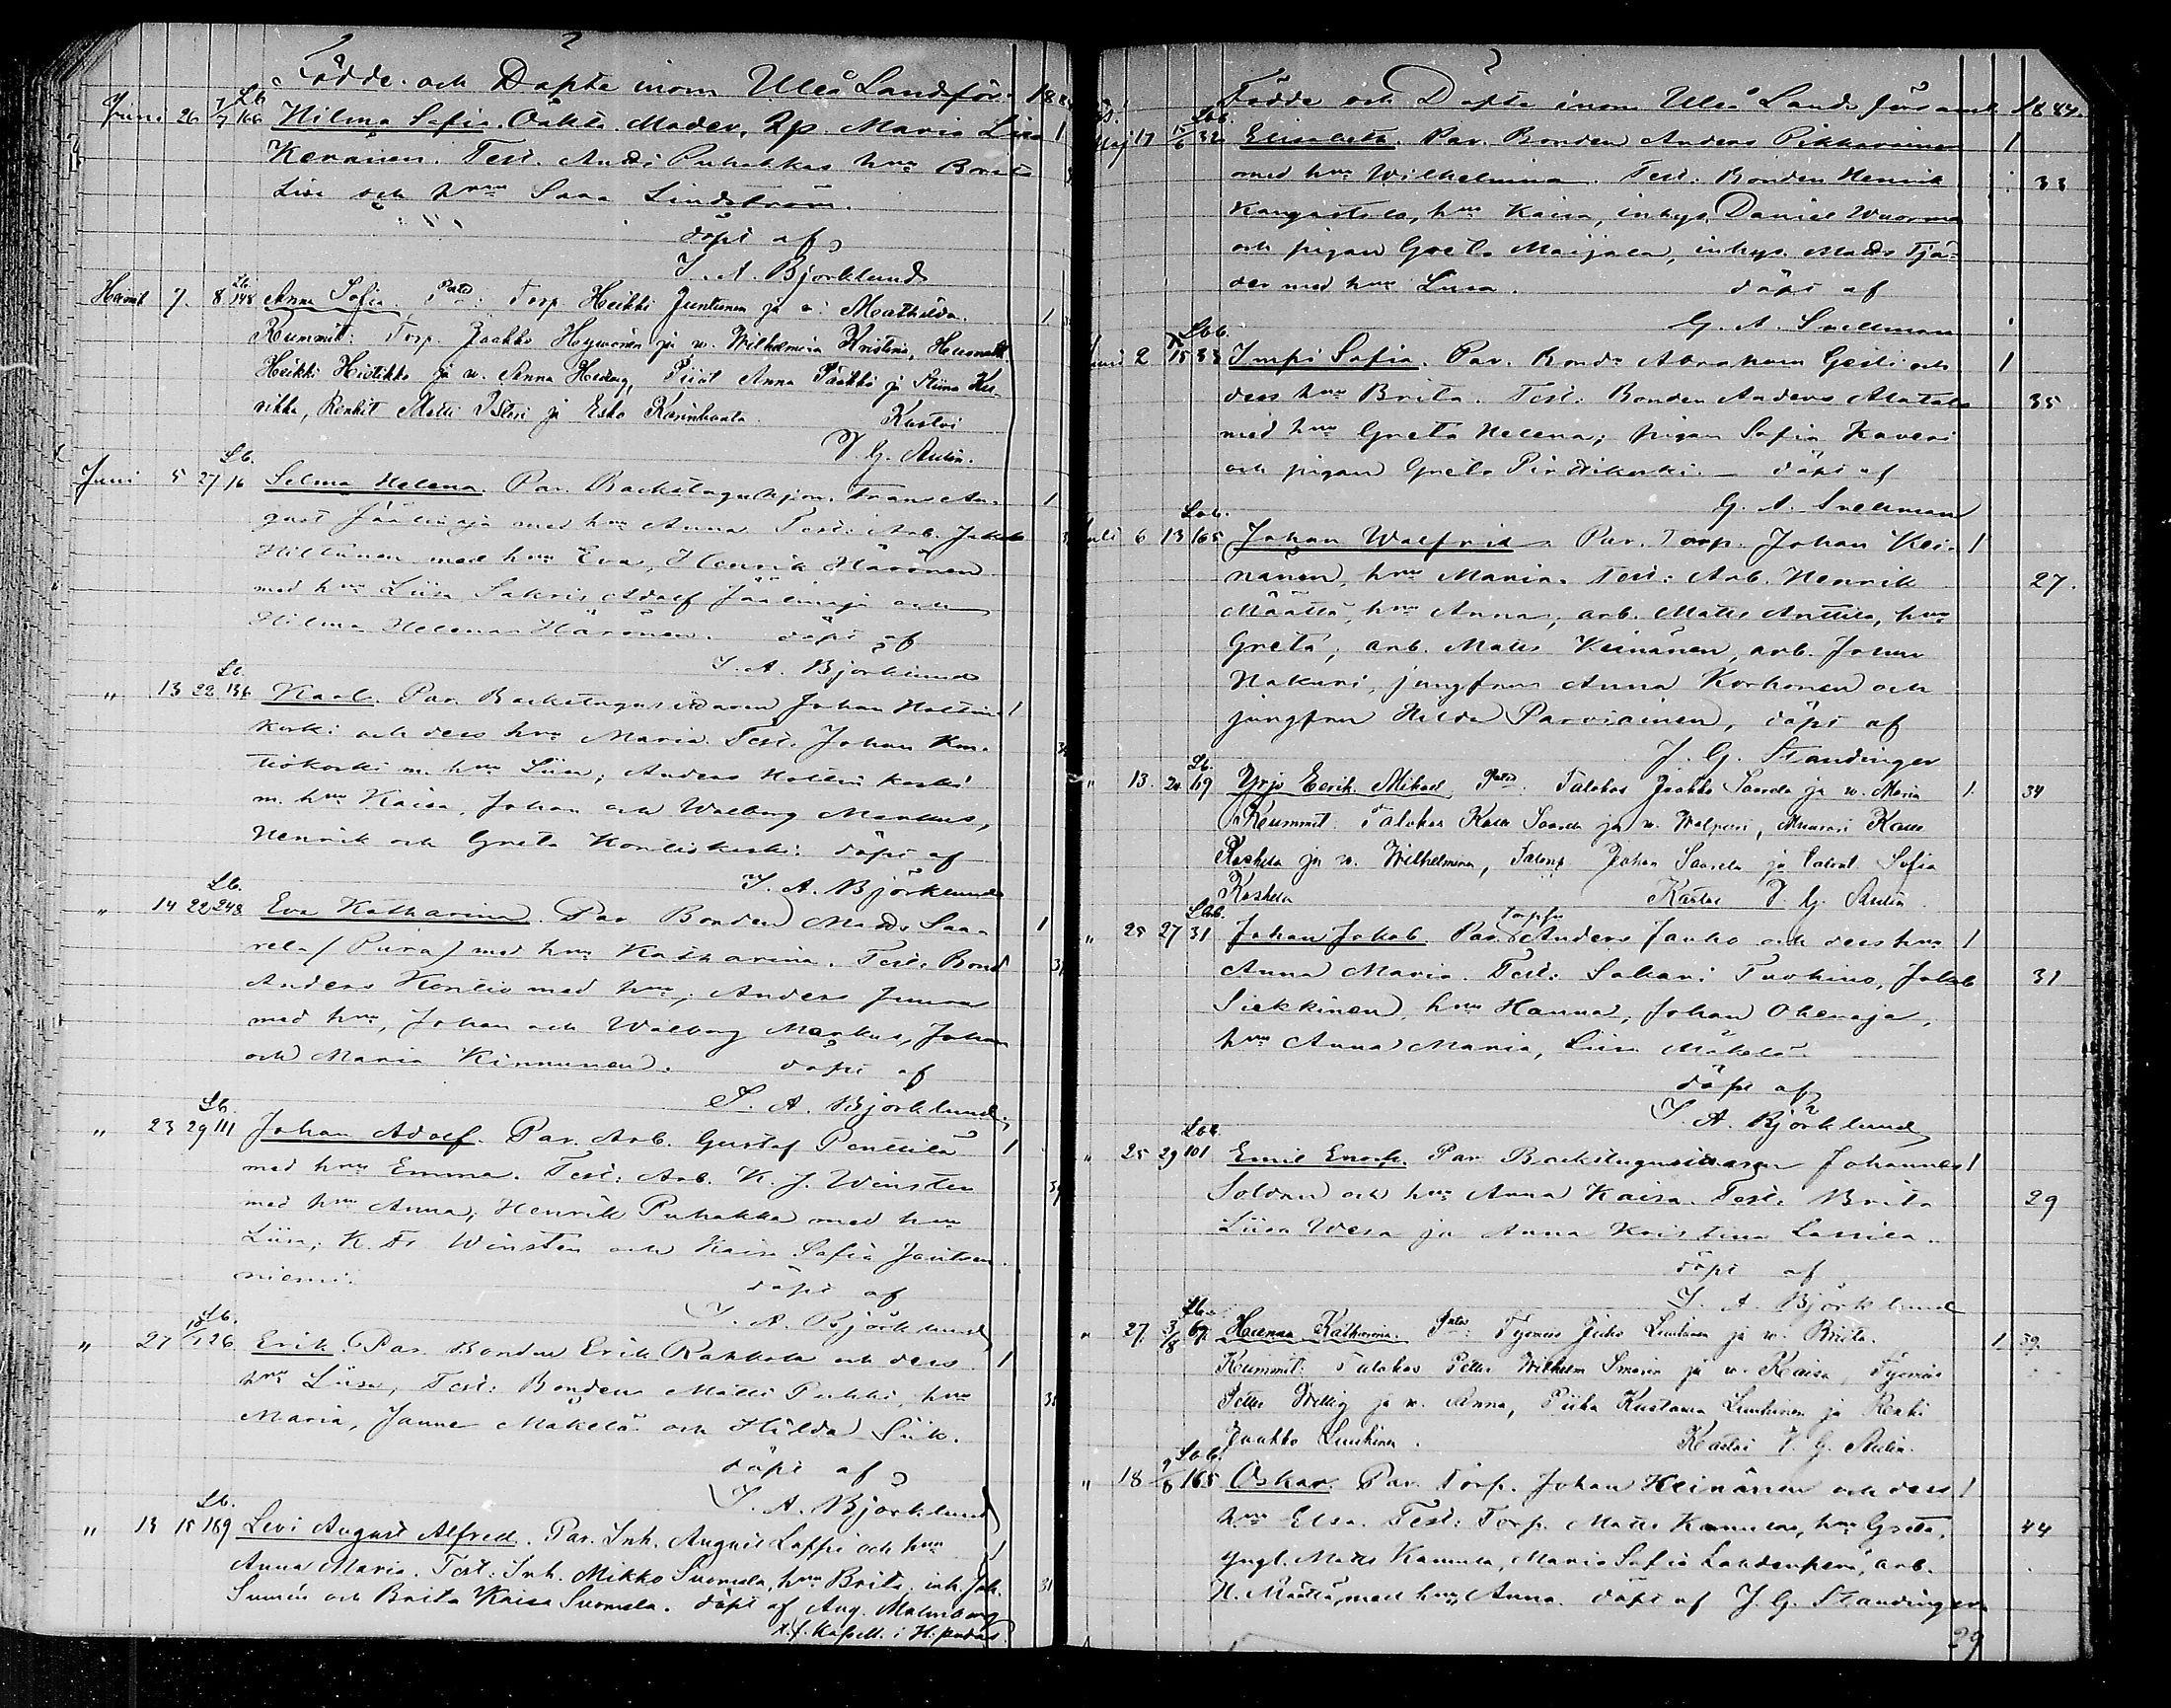 Födde och Döpte inom Uleå Landsför. 1884
Lb.
Juni 26 7/7 166 Hilma Sofia. Oäkta. Moder, Lp. Maria Lisa 1
Keränen. Test. Andr. Puhakkas hru Brita
Lisa och hru Sara Lindström.
döpt af
J. A. Björklund
Lb.
Heinäk 7. 8 148 Anna Sofia. Torp. Heikki Juntunen ja v: Mathilda. 1
Kummit: Torp. Jaakko Heywonen ja w. Wilhelmina Kristina,
Heikki Hiltikko ja w. Anna Hedvig, Piiat Anna Pääkkö ja Stiina
Rengit Matti ja Esko Karinkanta. Kastoi
J. G. Aulin.
Lb.
Juni 5 27 16 Selma Helena. Par. Backstuguhjon. Frans Au- 1
gust Jäälinoja med hru Anna. Test: Arb. Jakob
Hiltunen med hru Eva, Henrik Härönen
med hru Liisa Sakris Adolf Jäälinoja och
Hilma Helena Härönen. döpt af
J. A. Björklund
Lb.
" 13 22 136 Karl. Par. Backstugusittaren Johan Holtin- 1
koski och dess hru Maria. Test. Johan Kon-
tiokoski m. hru Liisa, Anders Holtinkoski
m. hru Kaisa, Johan och Walborg Markus,
Henrik och Greta Kontiokoski. döpt af
J. A. Björklund
Lb.
" 14 22 248 Eva Katharina. Par Bonden Matts Saa- 1
rela (Pura) med hru Katharina. Test: Bond
Anders Kontio med hru, Anders Junna
med hru, Johan och Walborg Markus, Johan
och Maria Kinnunen. döpt af
J. A. Björklund
Lb.
" 23 29 111 Johan Adolf. Par. Arb. Gustaf Penttilä 1
med hru Emma. Test: Arb. K. J. Winsten
med hru Anna, Henrik Puhakka med hru
Liisa, K. Fr Winsten och Kaisa Sofia
niemi. döpt af
J. A. Björklund
Lb.
" 27 126 Erik. Par. Bonden Erik Rahkola och dess 1
hru Liisa, Test: Bonden Matti Pukki, hru
Maria, Janne Mäkelä och Hilda Siik.
döpt af
J. A. Björklund
Lb.
" 13 15 189 Levi August Alfred. Par. Inh. August Lappi och hru 1
Anna Maria. Test: Inh. Mikko Suomela, hru Brita, inh. Joh. 31
och Brita Kaisa Suomela. döpt af Aug. Malmberg
Kapell. i H:pudas
Födde och Döpte inom Uleå Lands församl. 1884.
Lbb.
Maj 17 15/6 32 Elisabeta. Par. Bonden Anders Pikkarainen 1
med hru Wilhelmina. Test: Bonden Henrik 33
Kangastalo, hru Kaisa, inhys. Daniel Wuorma
och pigan Greta Maijala, inhys. Matts Tjä-
der med hru Lisa. döpt af
G. A. Snellman
Lbb.
Juni 2 15 33 Impi Sofia. Par. Bond. Abraham Gesti och 1
dess hru Brita. Test: Bonden Anders Alatalo 35
med hru Greta Helena; pigan Sofia Kaveri
och pigan Greta. döpt af
G. A. Snellman
Lbb.
Juli 6 13 165 Johan Walfrid. Par. Torp. Johan Kei- 1
nänen, hru Maria. Test: Arb. Henrik 27.
Määttä, hru Anna, arb. Matts Anttila, hru
Greta; arb. Matts Keinänen, arb. Johan
Hakuri, jungfrun Anna Korhonen och
jungfrun Hilda Parviainen, döpt af
J. G. Standinger
Lb.
" 13. 20 119 Yrjö Eerik Mikael. Talokas Jaakko Saarela ja w. Maria 1. 34
Kummit. Talokas Kalle Saarela ja w. Walpuri, Muurari Kalle
Koskela ja w. Wilhelmina, Johan Saarela ja Sofia
Koskela Kastoi J. G. Aulin
Lbb.
" 25 27 31 Johan Jakob. Par. Torpn Anders Jauho och dess hru 1
Anna Maria. Test: Sakari Tuohino, Jakob 31
Siekkinen, hru Hanna, Johan Ohenoja,
hru Anna Maria, Liisa Mäkelä.
döpt af
J. A. Björklund
Lbb.
" 25 29 101 Emil Enock. Par Backstugusittaren Johannes 1
Soldan och hru Anna Kaisa. Test: Brita 29
Liisa Wesa ja Anna Kristina Lassila.
döpt af
J. A. Björklund
Lb.
" 27. 3/8 67. Hanna Katharina. Työmies Juho Luukinen ja w. Briita. 1 39.
Kummit: Talokas Petter Wilhelm Smarin ja w. Kaisa, Työmies
Petter Willig ja w. Anna, Piika Kustaava Luukinen ja Renki
Jaakko Luukinen. Kastoi J. G. Aulin.
Lbb.
" 18 9/8 165 Oskar. Par. Torp. Johan Keinänen och dess 1
hru Elsa. Test: Torp. Matts Kannula, hru Greta, 44
yngl. Matts Kannula, Maria Sofia Lahdenperä, arb.
H. Määttä, med hru Anna. döpt af J. G. Standinger
29